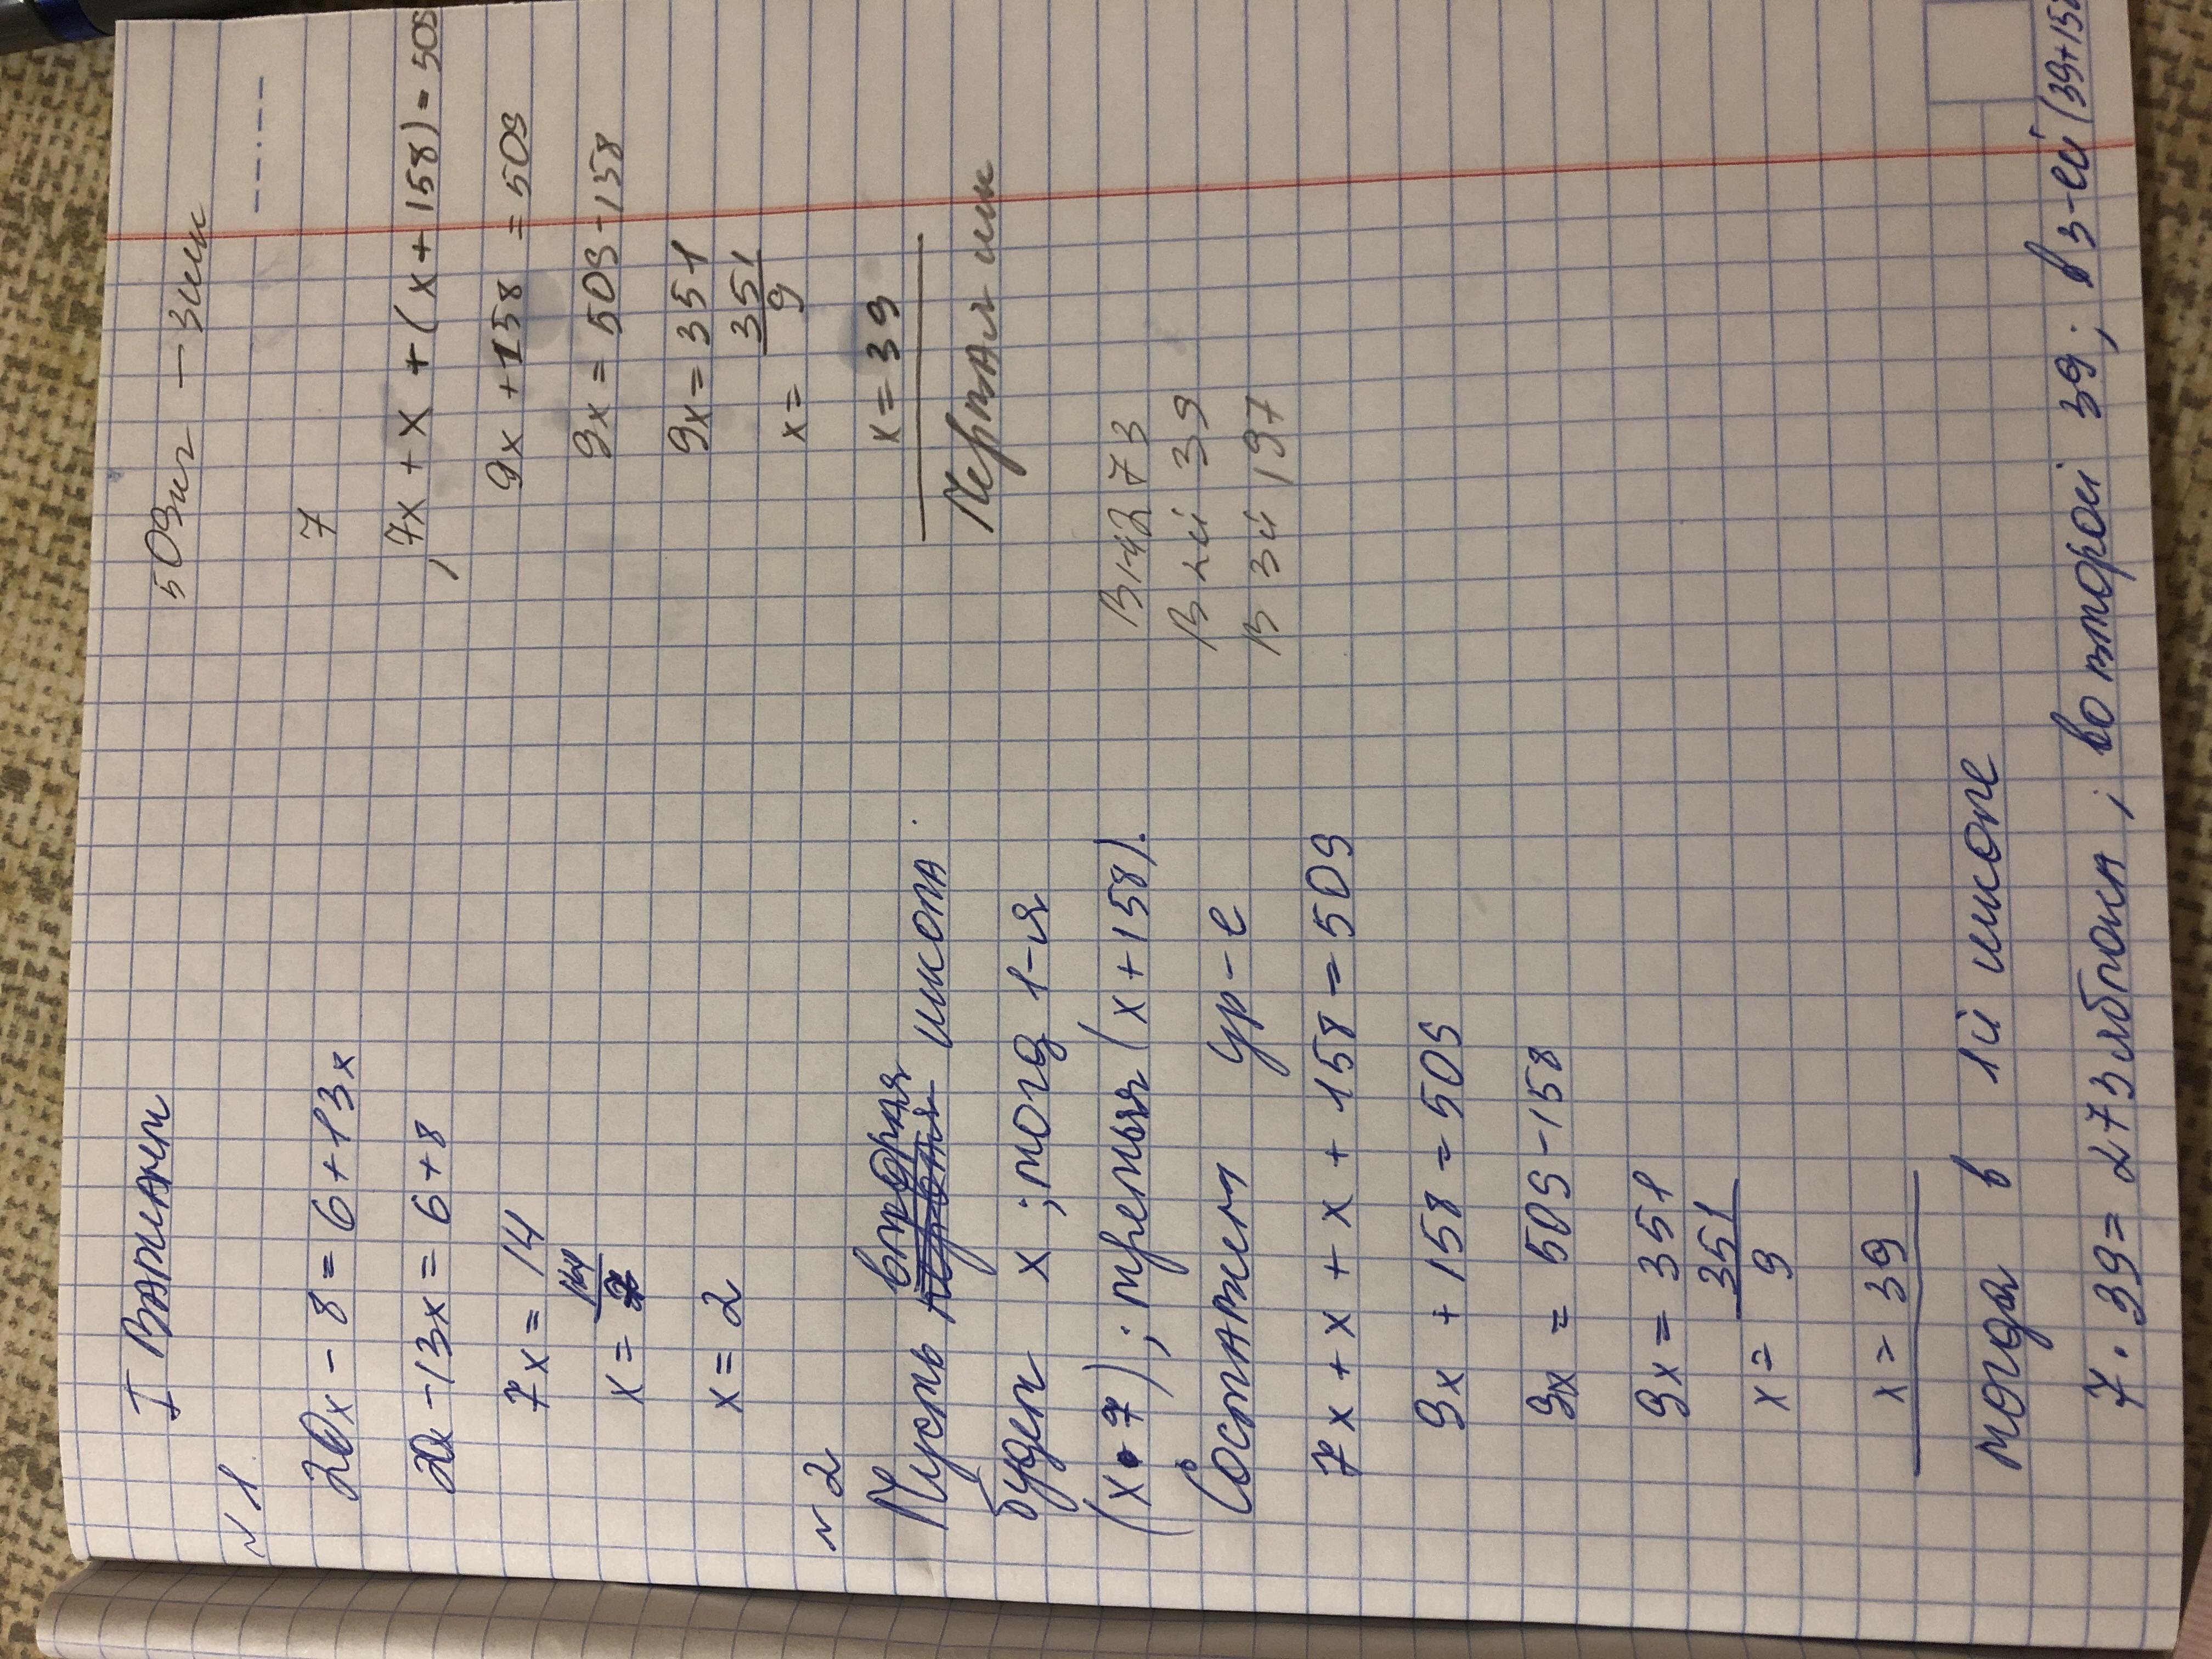 I Вариант
N 1
20x - 8 = 6 + 13x
20x - 13x = 6 + 8
7x = 14
x = 14/7
x = 2
N 2
Пусть вторая школа
будет x ; тогда 1-я
(x • 7) ; третья (x + 158).
Составим ур-е
7x + x + x + 158 = 509
9x + 158 = 509
9x = 509 - 158
9x = 351
x = 351/9
x = 39
тогда в 1й школе
7 · 39 = 273 яблока ; во второй 39 ; в 3-ей (39+158
509кг - 3шк
7
7x + x + (x + 158) = 509
9x + 158 = 509
9x = 509 - 158
9x = 351
x = 351/9
x = 39
Первая шк
В 1й 273
В 2й 39
В 3й 197